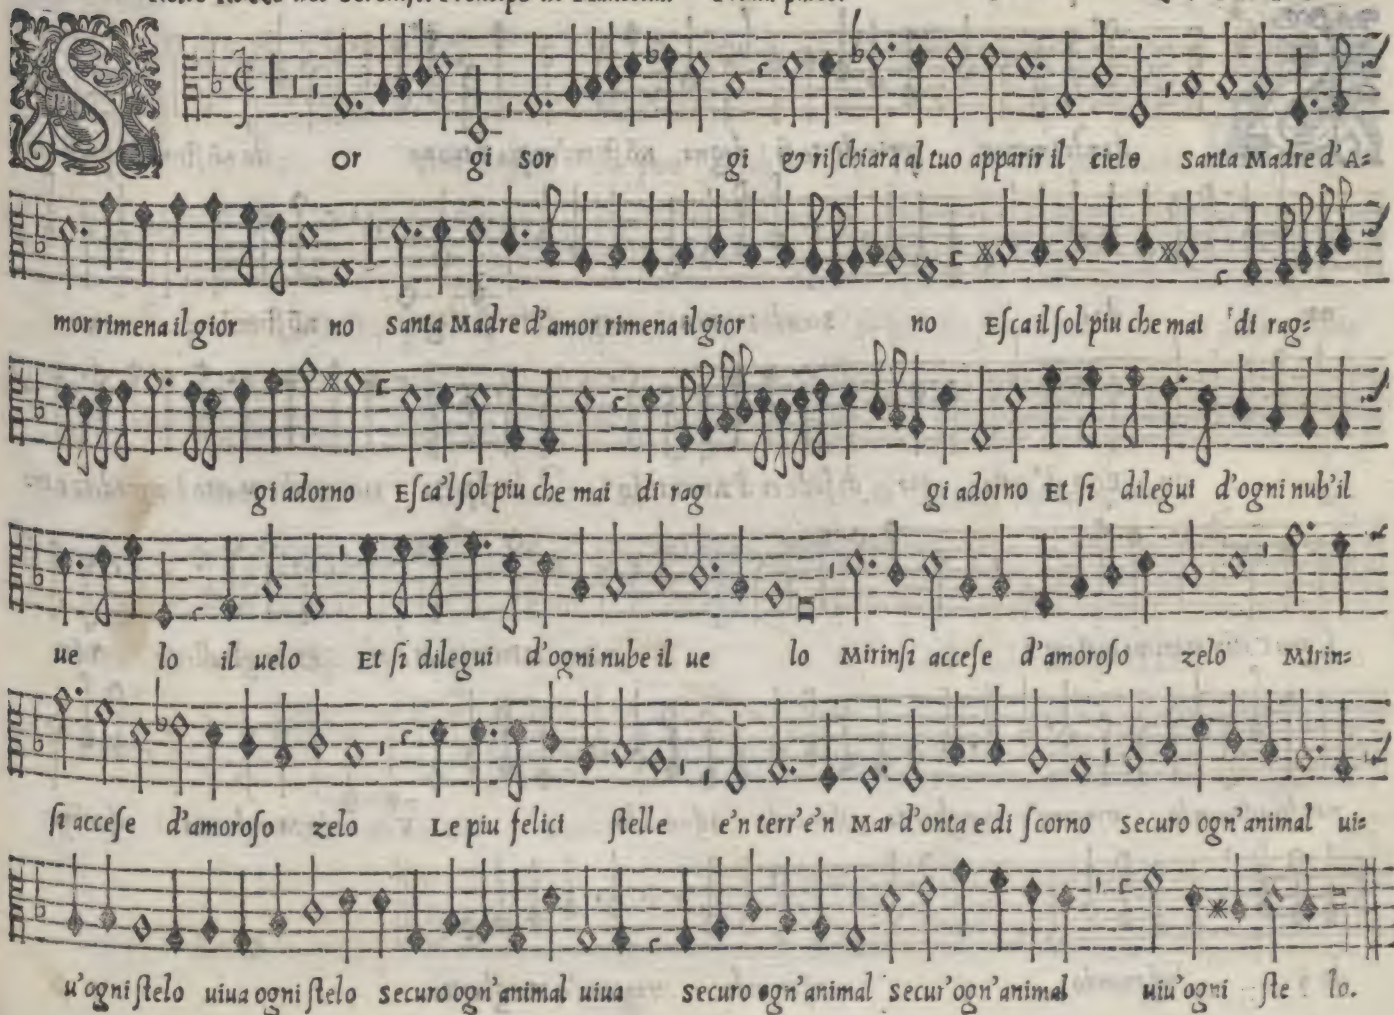 Prima parte.
S or gi sor gi & riſchiara al tuo apparir il cielo Santa Madre d'A=
mor rimena il gior no Santa Madre d'amor rimena il gior no Eſca il ſol piu che mai di rag=
gi adorno Eſca'l ſol piu che mai di rag gi adorno Et ſi dilegui d'ogni nub'il
ue lo il uelo Et ſi dilegui d'ogni nube il ue lo Mirinſi acceſe d'amoroſo zelo Mirin=
ſi acceſe d'amoroſo zelo Le piu felici ſtelle e'n terr'e'n Mar d'onta e di ſcorno Securo ogn'animal ui=
u'ogni ſtelo uiua ogni ſtelo Securo ogn'animal uiua Securo ogn'animal Secur'ogn'animal uiu'ogni ſte lo.